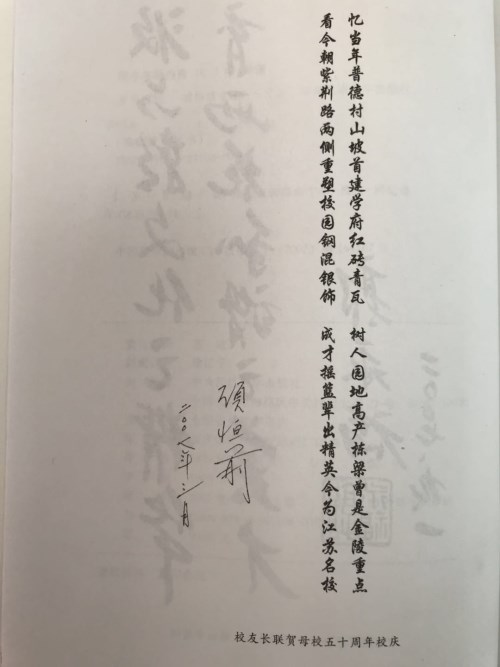 忆当年普德村山坡首建学府红砖青瓦 树人园地高产栋梁曾是金陵重点
看今朝紫荆路两侧重塑校园钢混银饰 成才摇篮辈出精英今为江苏名校
二〇〇七年三月
校友长联贺母校五十周年校庆